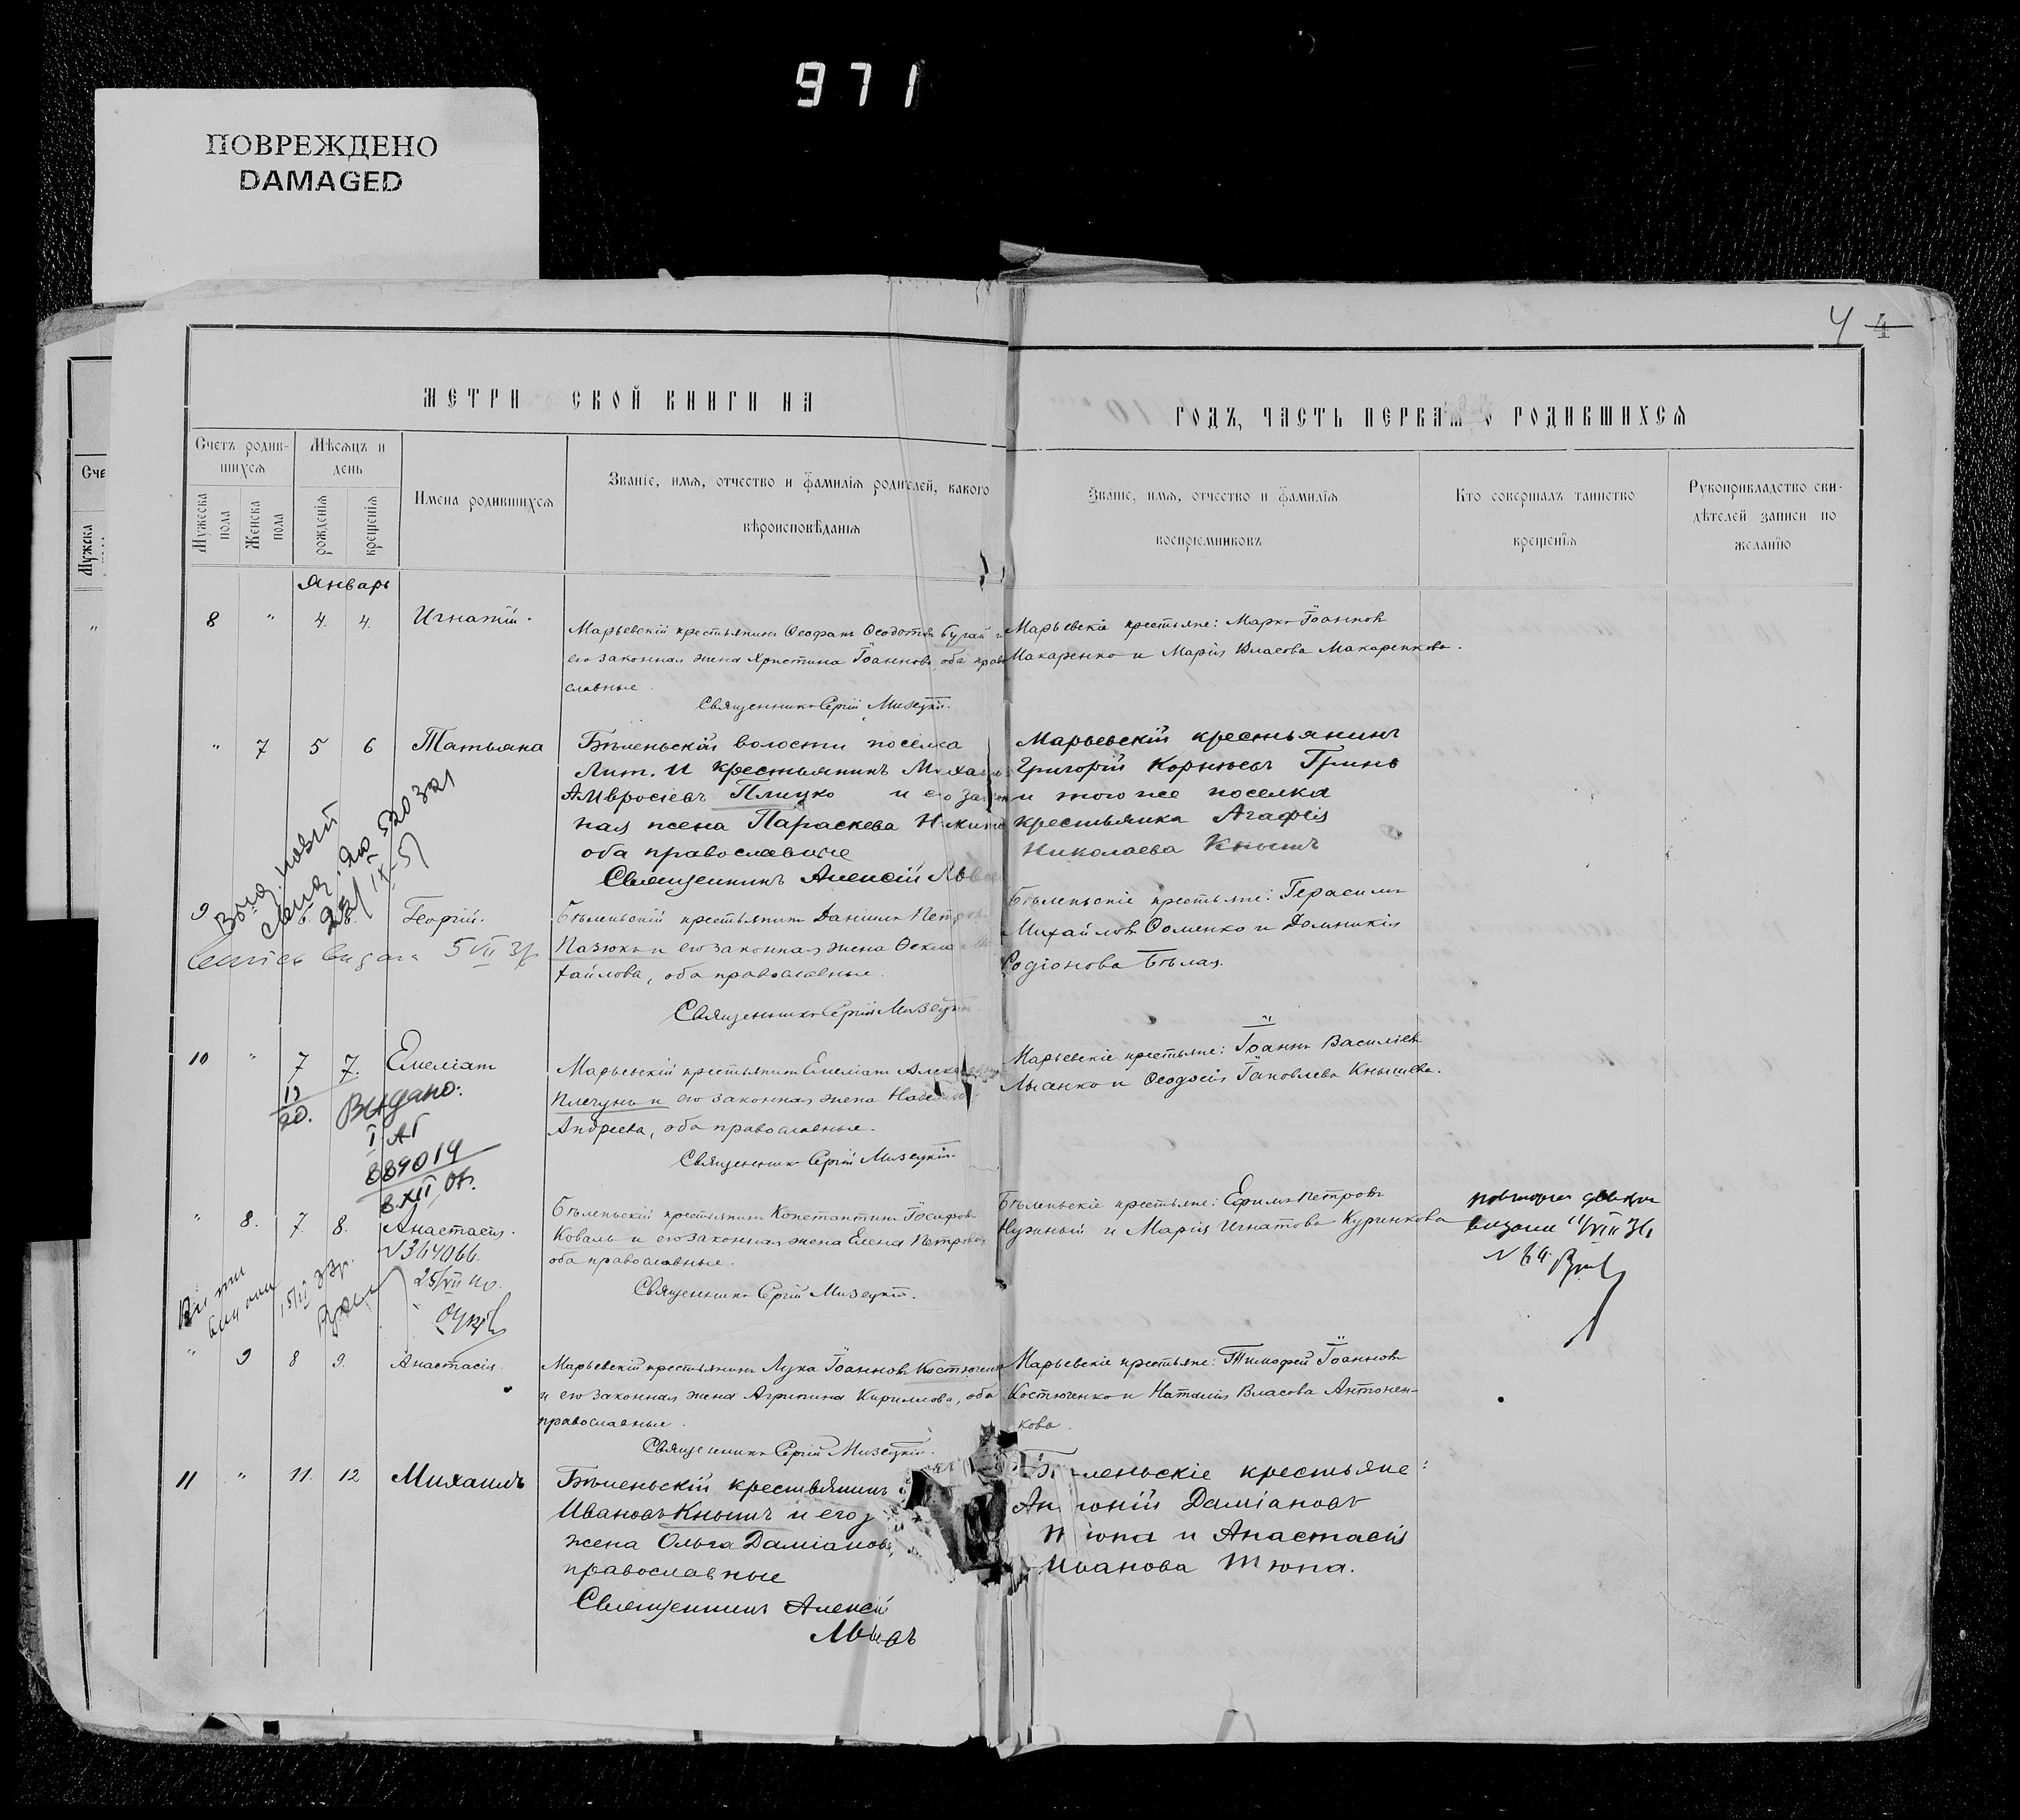 971
ПОВРЕЖДЕНО
DAMAGED
4 4
МЕТРИ СКОЙ КНИГИ НА
ГОДЪ, ЧАСТЬ ПЕРВАЯ О РОДИВШИХСЯ
Счетъ родив-
шихся
Мужеска пола
Женска пола
Мѣсяцъ и
день
рожденія
крещенія
Имена родившихся
Званіе, имя, отчество и фамилія родителей, какого
вѣроисповѣданія
Званіе, имя, отчество и фамилія
воспріемниковъ
Кто совершалъ таинство
крещенія
Рукоприкладство сви-
дѣтелей записи по
желанію
Счe
Мужска
Январь
8 " 4. 4. Игнатій.
Марьевскій крестьянинъ Ѳеофанъ Ѳеодотовъ Бугай и
его законная жена Христина Іоаннова, оба право
славные.
Священникъ Сергій Мизецкій.
Марьевскіе крестьяне: Марко Іоанновъ
Макаренко и Марія Власова Макаренкова.
" 7 5 6 Татьяна
Бѣленьской волости поселка
Лит. И крестьянинъ Михаилъ
Амвросіевъ Плицко и его закон
ная жена Параскева Никит
оба православные
Священникъ Алексій Львовъ
Марьевскій крестьянинъ
Григорій Корніевъ Гринь
и того же поселка
крестьянка Агафія
Николаева Кнышъ
520321
23/IX-51
9 6. 8. Георгій.
5 VII 37
Бѣленьскій крестьянинъ Даніилъ Петров
Пазюкъ и его законная жена Ѳекла Ми
хайлова, оба православные.
Священникъ Сергій Мизецкій
Бѣленьскіе крестьяне: Герасимъ
Михайловъ Ѳоменко и Домникія
Родіонова Бѣлая.
10 " 7 7. Емеліанъ
13
20. Видано.
I АГ
889014
8 XII
Марьевскій крестьянинъ Емеліанъ Алексѣевъ
Плегунъ и его законная жена Надежда
Андреева, оба православные.
Священникъ Сергій Мизецкій.
Марьевскіе крестьяне: Іоаннъ Василіевъ
Лысенко и Ѳеодосія Іаковлева Кнышева.
" 8. 7. 8. Анастасія.
N 364066.
25/VII 40.
15/II 33р.
Бѣленьскій крестьянинъ Константинъ Іосифовъ
Коваль и его законная жена Елена Петрова
оба православные.
Священникъ Сергій Мизецкій.
Бѣленьскіе крестьяне: Ефимъ Петровъ
Нужный и Марія Игнатова Куринкова
11/VIII 36
N 64
" 9 8 9. Анастасія.
Марьевскій крестьянинъ Лука Іоанновъ Костюченко
и его законная жена Агрипина Кириллова, оба
православные.
Священникъ Сергій Мизецкій.
Марьевскіе крестьяне: Тимофей Іоанновъ
Костюченко и Наталія Власова Антонен-
кова.
11 " 11. 12 Михаилъ
Бѣленьскій крестьянинъ
Ивановъ Кнышъ и его з
жена Ольга Даміанова,
православные
Священникъ Алексій
Львовъ
Бѣленьскіе крестьяне:
Антоній Даміановъ
Тюпа и Анастасія
Иванова Тюпа.